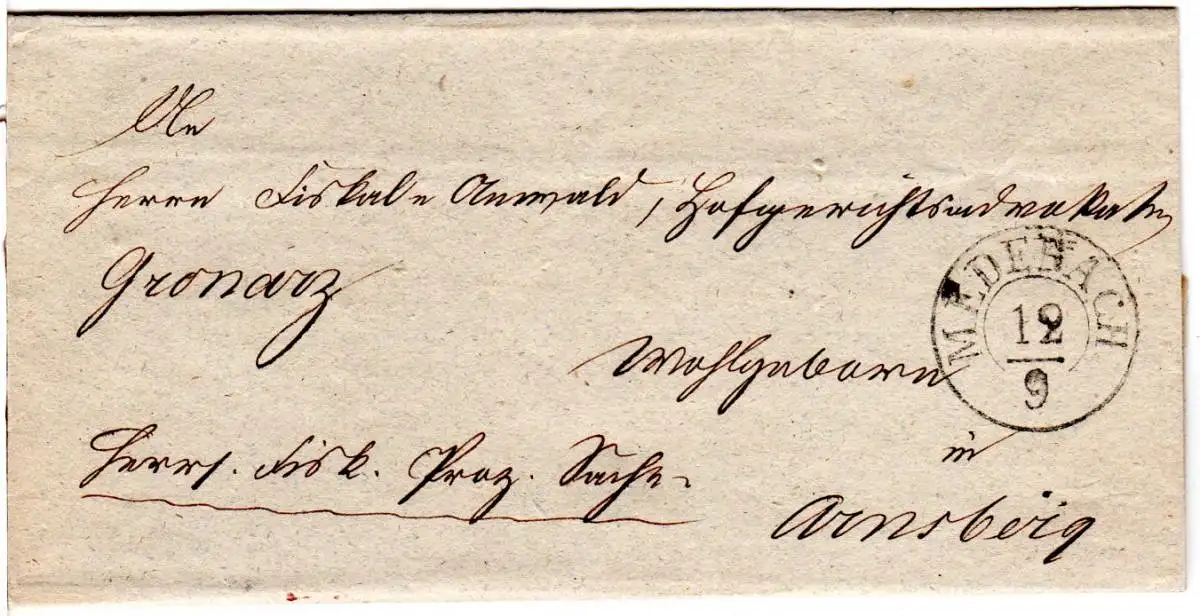 An
Herrn Fiskal-Anwald, Hofgerichtsadvokaten
Gronarz
Wohlgeboren
MEDEBACH
12
9
in
Herrs. Fisk. Proz. Sache.
Arnsberg